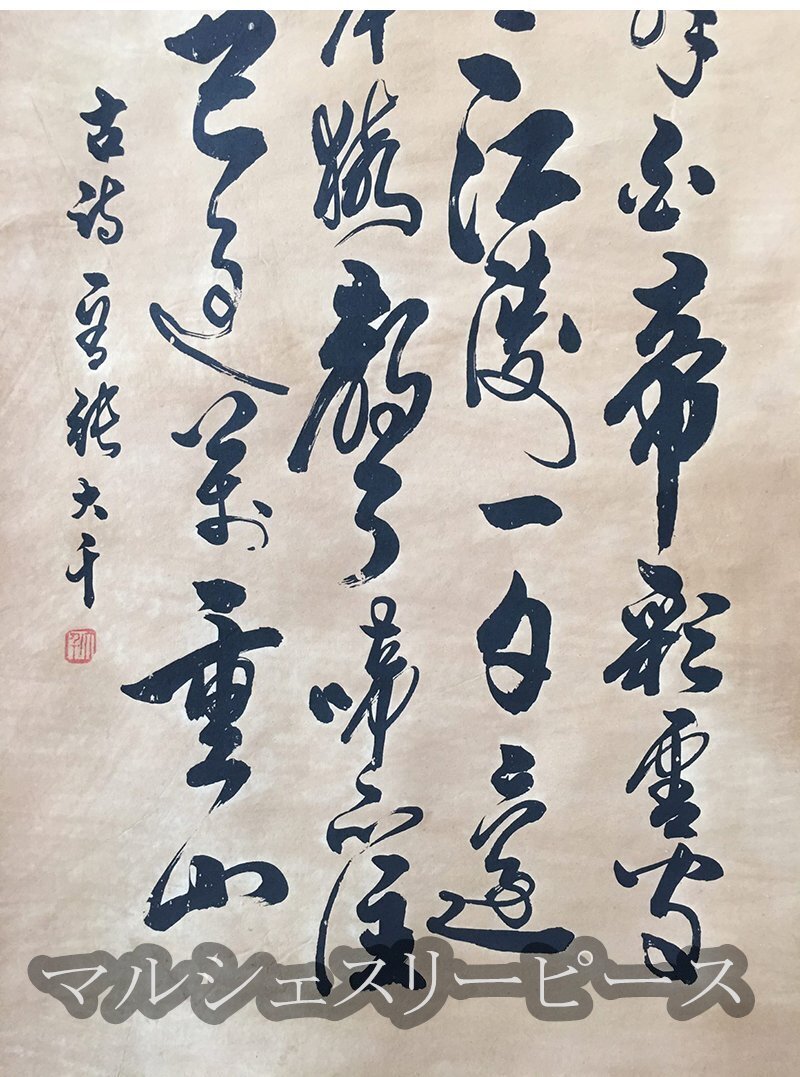 白帝彩雲間
江陵一日還
猿聲啼不住
已過萬重山
古詩一首張大千
マルシェスリーピース